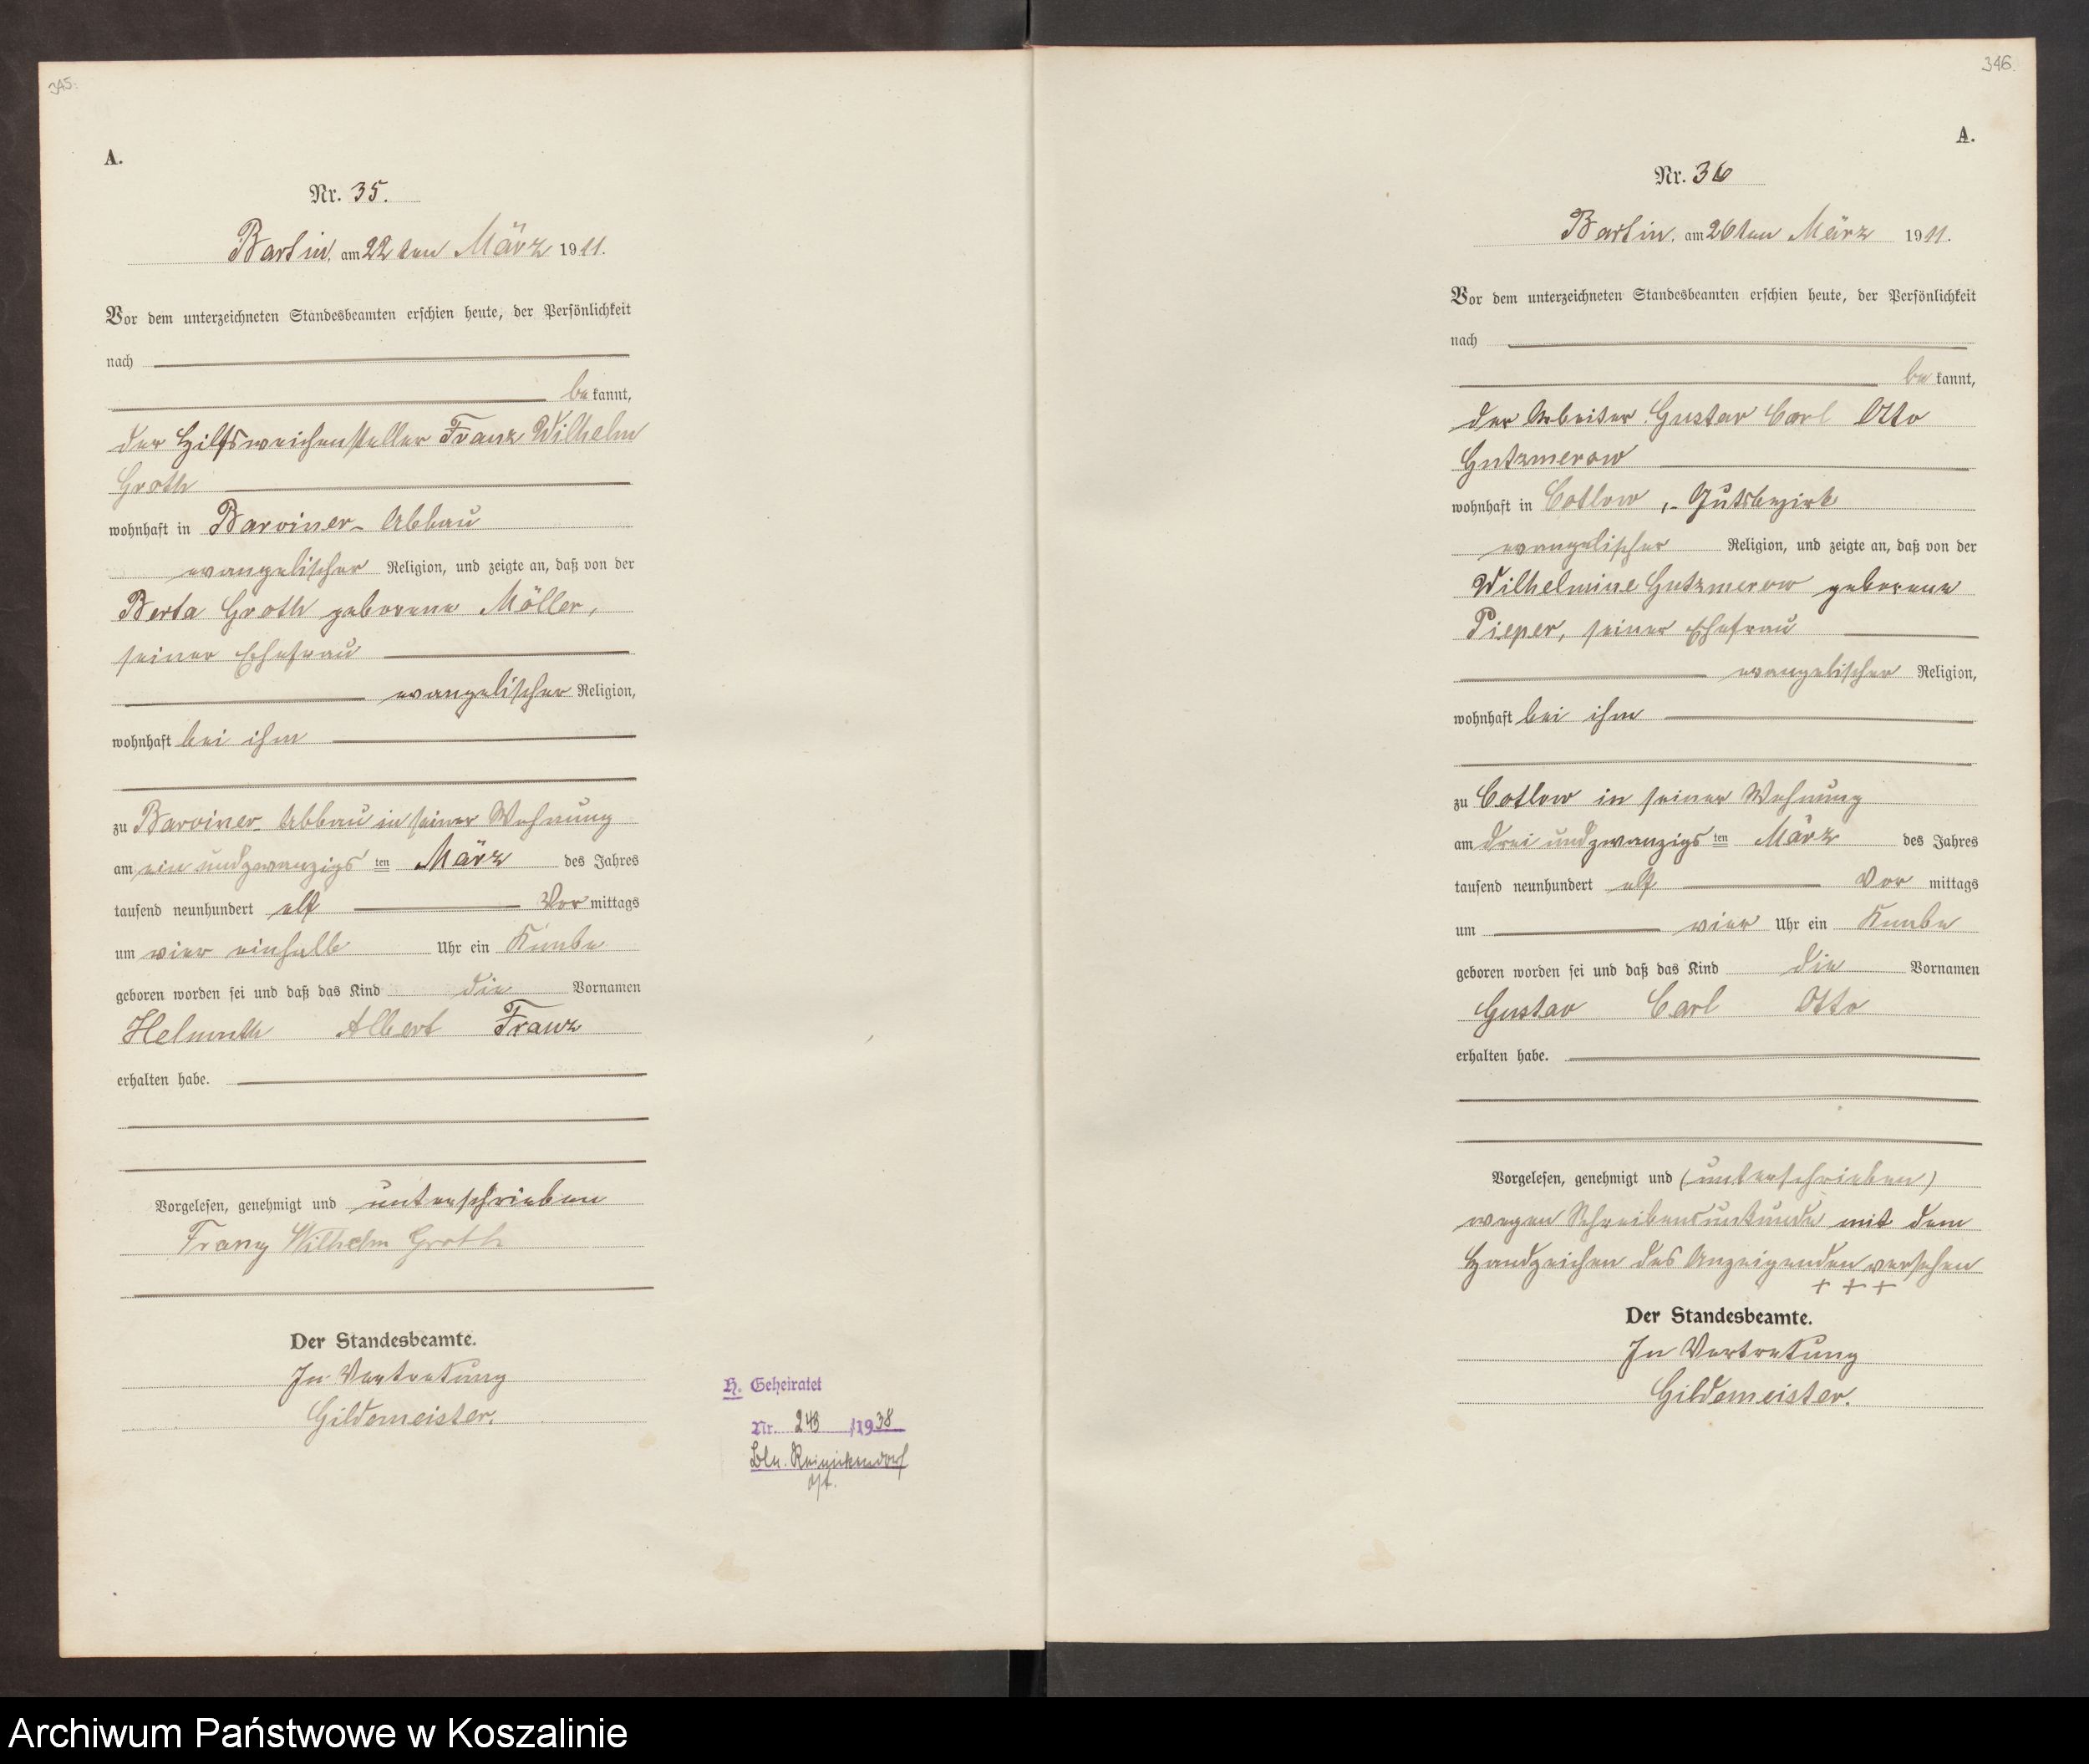 345.
A.
Nr. 35.
Bartin, am 22ten März 1911.
Vor dem unterzeichneten Standesbeamten erschien heute, der Persönlichkeit
nach
be kannt,
der Hilfsweichensteller Franz Wilhelm
Groth
wohnhaft in Barviner-Abbau
evangelischer Religion, und zeigte an, daß von der
Berta Groth geborene Möller,
seiner Ehefrau
evangelischer Religion,
wohnhaft bei ihm
zu Barviner-Abbau in seiner Wohnung
am ein und zwanzigs ten März des Jahres
tausend neunhundert elf Vor mittags
um vier einhalb Uhr ein Knabe
geboren worden sei und daß das Kind die Vornamen
Helmuth Albert Franz
erhalten habe.
Vorgelesen, genehmigt und unterschrieben
Franz Wilhelm Groth
Der Standesbeamte.
In Vertretung
Gildemeister.
H. Geheiratet
Nr. 243 /1938
Bln. Reinickendorf
Ost.
346.
A.
Nr. 36
Bartin, am 26ten März 1911.
Vor dem unterzeichneten Standesbeamten erschien heute, der Persönlichkeit
nach
be kannt,
der Arbeiter Gustav Carl Otto
Gutzmerow
wohnhaft in Cotlow, Gutsbezirk
evangelischer Religion, und zeigte an, daß von der
Wilhelmine Gutzmerow geborene
Pieper, seiner Ehefrau
evangelischer Religion,
wohnhaft bei ihm
zu Cotlow in seiner Wohnung
am drei und zwanzigs ten März des Jahres
tausend neunhundert elf Vor mittags
um vier Uhr ein Knabe
geboren worden sei und daß das Kind die Vornamen
Gustav Carl Otto
erhalten habe.
Vorgelesen, genehmigt und (unterschrieben)
wegen Schreibensunkunde mit dem
Handzeichen des Anzeigenden versehen
+ + +
Der Standesbeamte.
In Vertretung
Gildemeister.
Archiwum Państwowe w Koszalinie